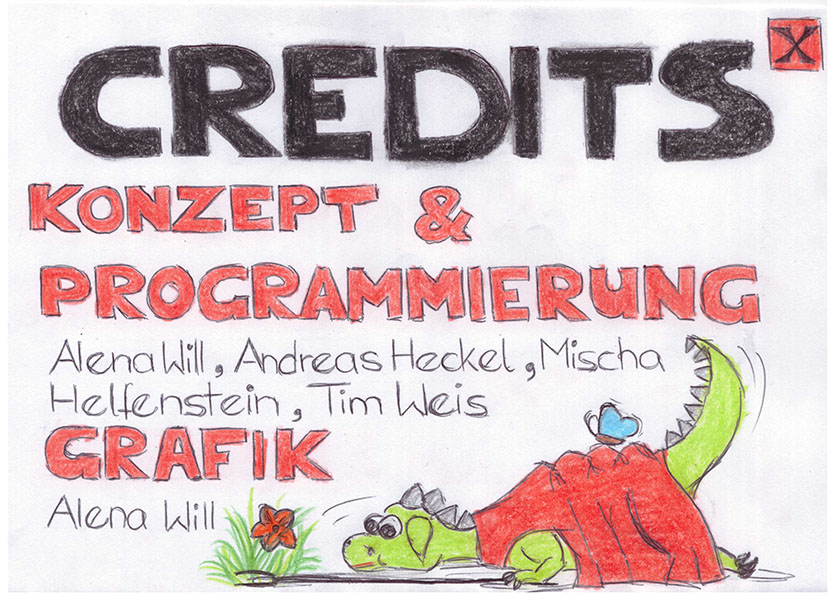 CREDITS X
KONZEPT &
PROGRAMMIERUNG
Alena Will, Andreas Heckel, Mischa
Helfenstein, Tim Weis
GRAFIK
Alena Will